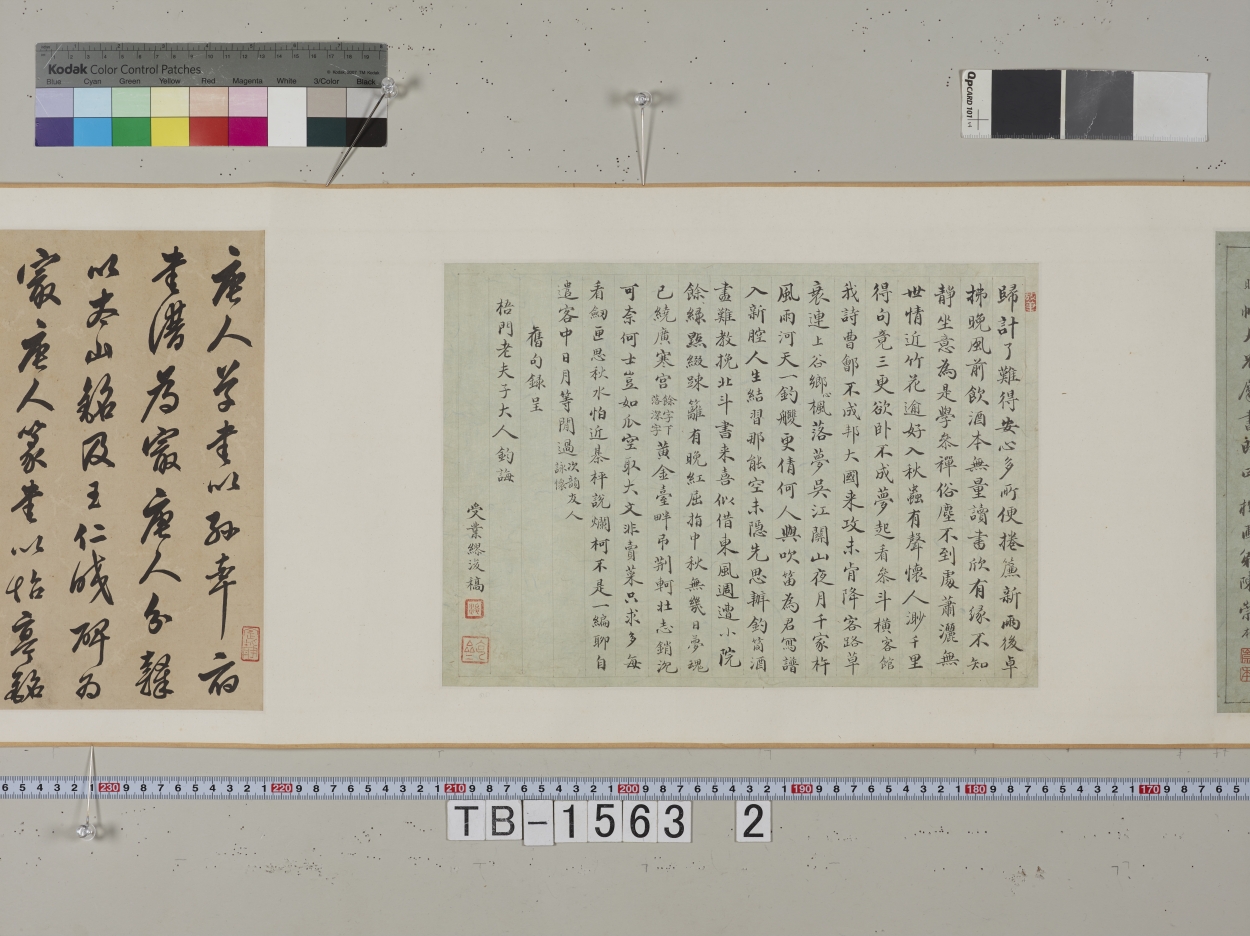 Kodak Color Control Patches
© Kodak, 2007, TM: Kodak
Blue Cyan Green Yellow Red Magenta White 3/Color Black
QPCARD 101
歸計了難得安心多所便捲簾新雨後卓
拂晚風前飲酒本無量讀書欣有緣不知
靜坐意為是學參禪俗塵不到處蕭灑無
世情近竹花逾好入秋蟲有聲懷人渺千里
得句竟三更欲卧不成夢起看參斗橫客館
我詩曹鄶不成邦大國来攻未肯降客路草
衰連上谷鄉心楓落夢吳江關山夜月千家杵
風雨河天一釣艭更倩何人與吹笛為君寫譜
入新腔人生結習那能空未隱先思辦釣筒酒
盞難教挽北斗書来喜似借東風週遭小院
餘綠點綴踈籬有晚紅屈指中秋無幾日夢魂
已繞廣寒宫餘字下落深字黄金臺畔弔荆軻壮志銷沈
可奈何士豈如瓜空取大文非賣菜只求多每
看劒匣思秋水怕近棊枰說爛柯不是一編聊自
遣客中日月等閒過次韻友人詠懷
舊句録呈
梧門老夫子大人鈞誨
受業繆浚稿
唐人学書以孙率府
書譜為寂唐人分隸
以太山銘及王仁皎碑为
寂唐人篆書以怡亭銘
6 5 4 3 2 1 230 9 8 7 6 5 4 3 2 1 220 9 8 7 6 5 4 3 2 1 210 9 8 7 6 5 4 3 2 1 200 9 8 7 6 5 4 3 2 1 190 9 8 7 6 5 4 3 2 1 180 9 8 7 6 5 4 3 2 1 170 9 8 7 6 5
TB-1563 2